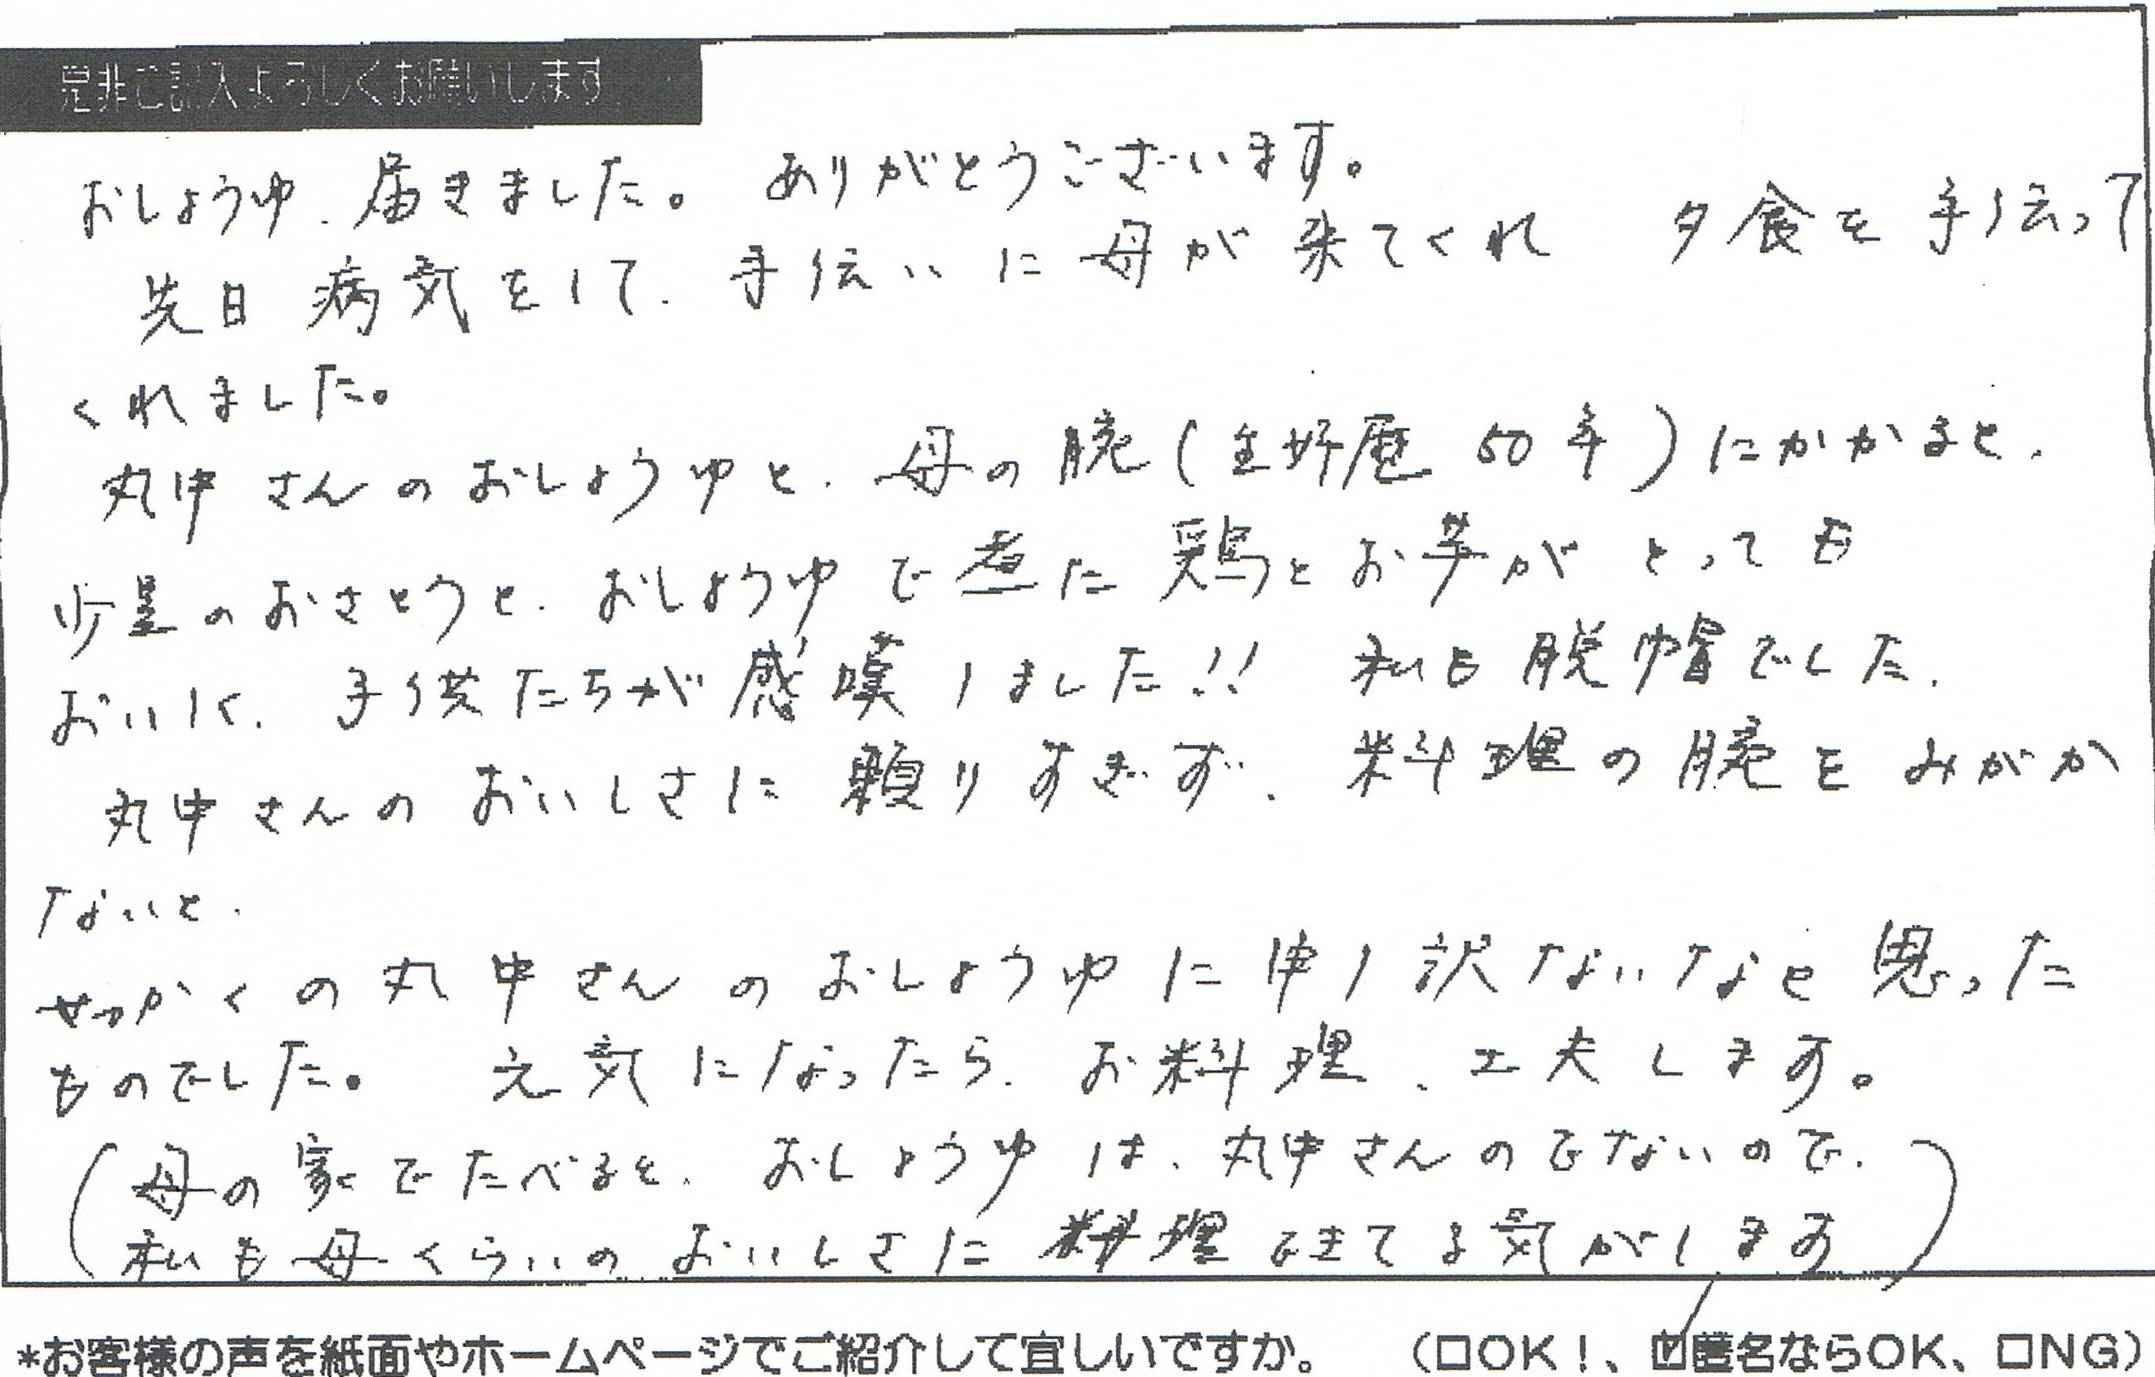 是非ご記入よろしくお願いします
おしょうゆ、届きました。 ありがとうございます。
先日 病気をして、手伝いに母が来てくれ 夕食を手伝って
くれました。
丸中さんのおしょうゆと、母の腕(主婦歴50年)にかかると、
少量のおさとうと、おしょうゆで煮た鶏とお芋がとっても
おいしく、子供たちが感嘆しました!! 私も脱帽でした。
丸中さんのおいしさに頼りすぎず、料理の腕をみがか
ないと、
せっかくの丸中さんのおしょうゆに申し訳ないなと思った
ものでした。 元気になったら、お料理、工夫します。
(母の家でたべると、おしょうゆは、丸中さんのでないので、
私も母くらいのおいしさに料理できてる気がします)
*お客様の声を紙面やホームページでご紹介して宜しいですか。 (□OK!、☑匿名ならOK、□NG)